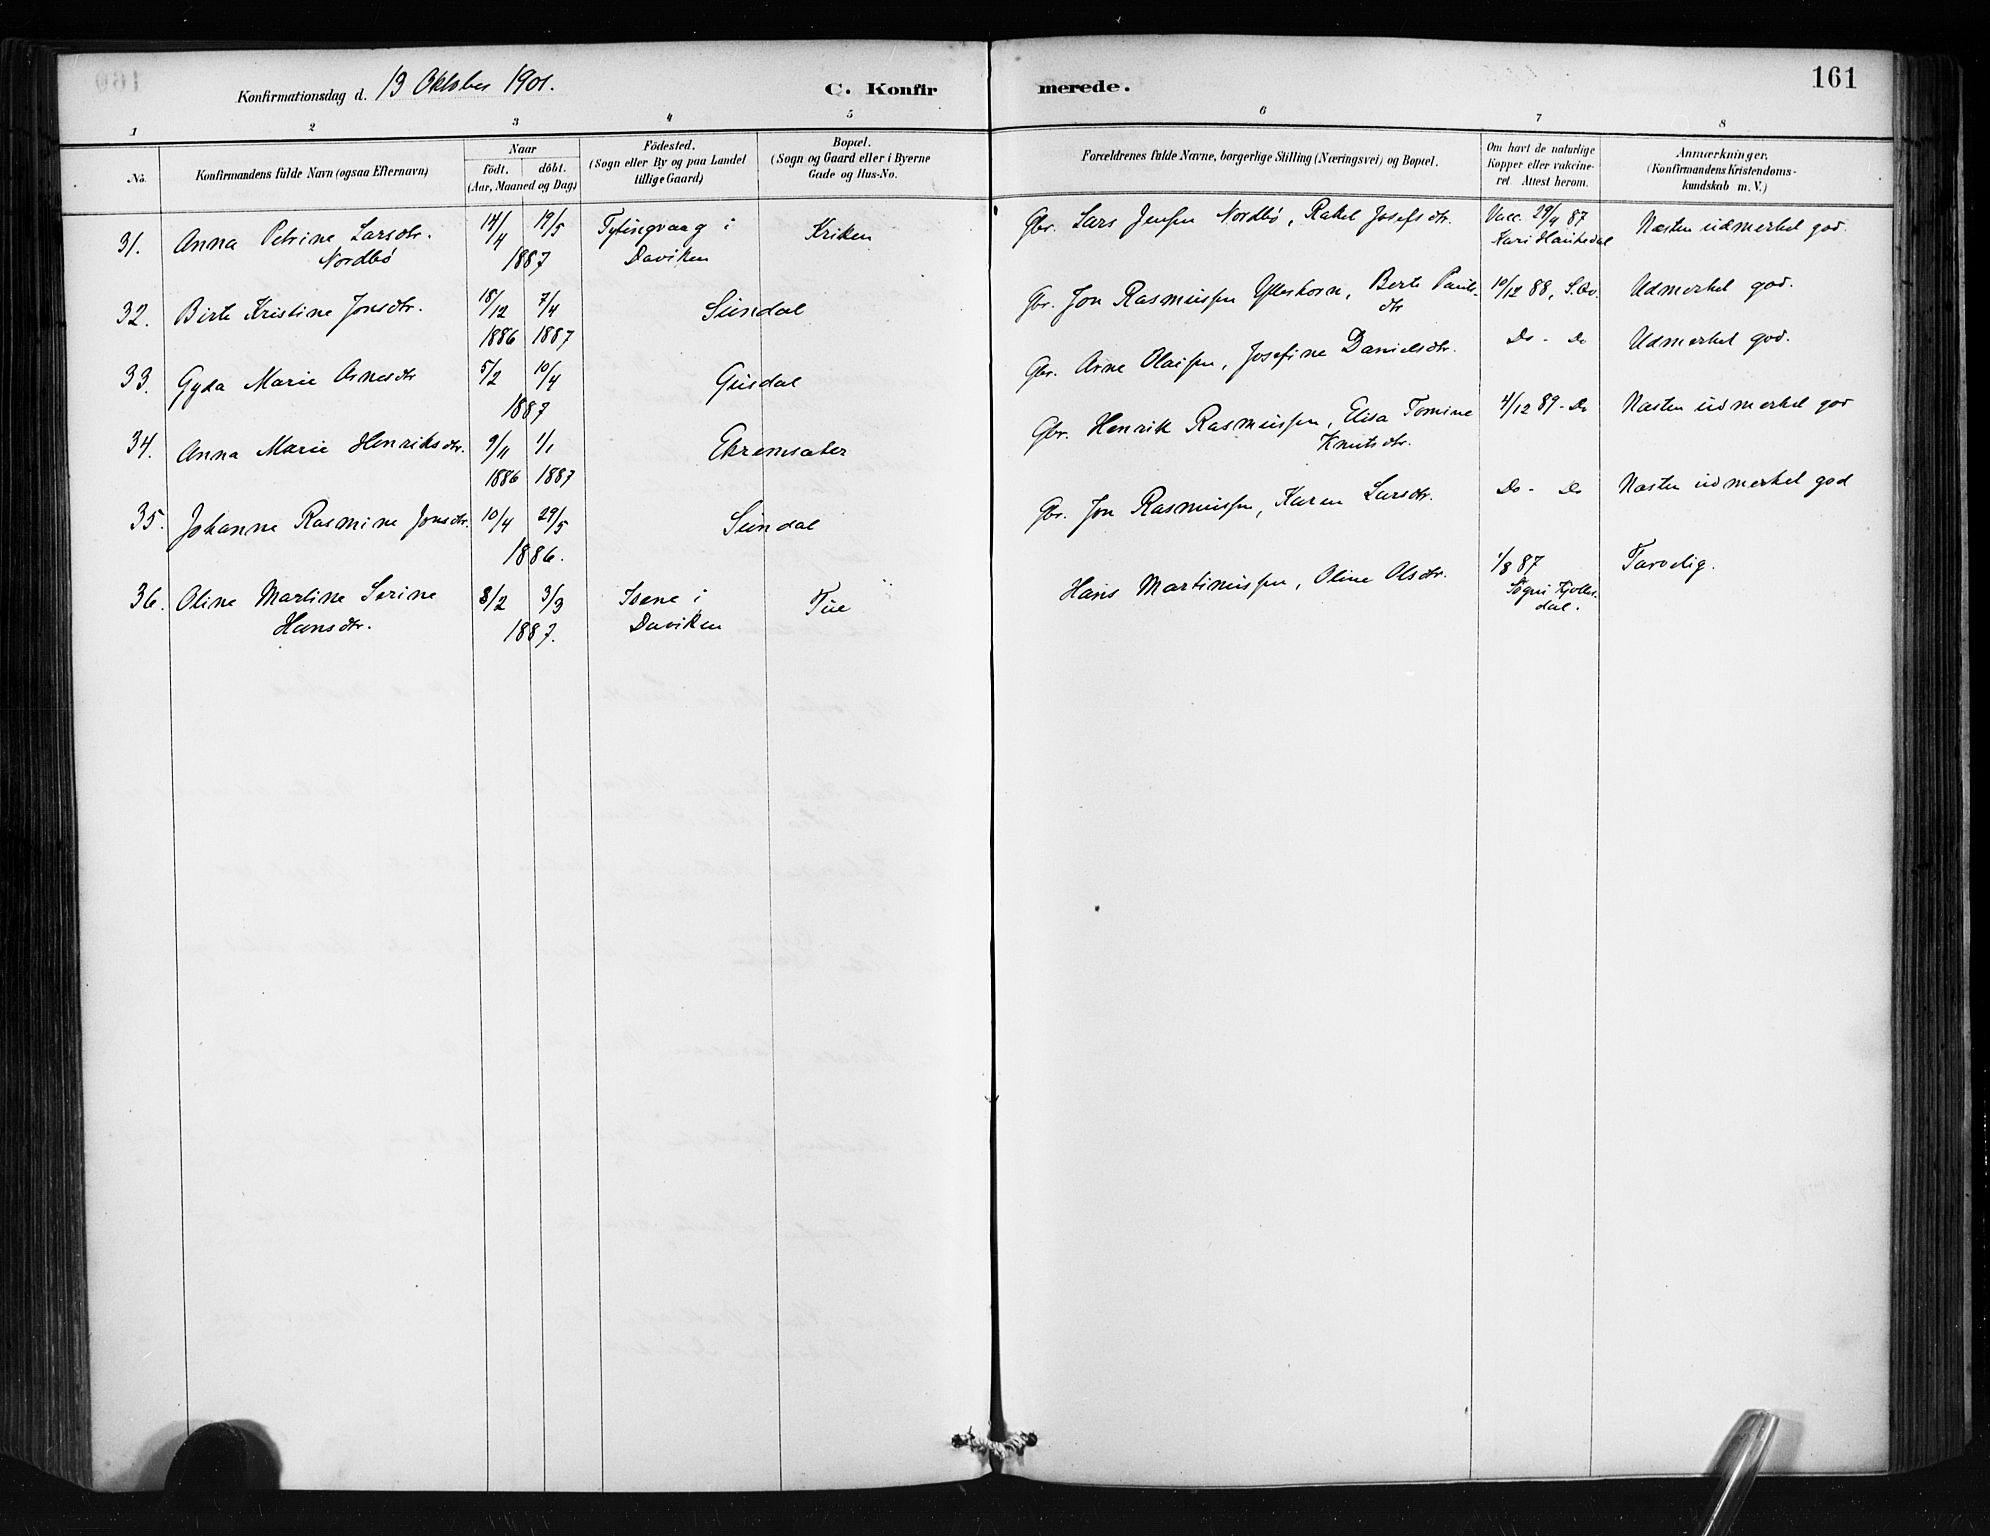 161
Konfirmationsdag d. 13 Oktober 1901.
C. Konfir
merede.
1 2 3 4 5 6 7 8
No.
Konfirmandens fulde Navn (ogsaa Efternavn)
Naar
födt. döbt.
(Aar, Maaned og Dag)
Födested.
(Sogn eller By og paa Landet
tillige Gaard)
Bopæl.
(Sogn og Gaard eller i Byerne
Gade og Hus-No.
Forældrenes fulde Navne, borgerlige Stilling (Næringsvei) og Bopæl.
Om havt de naturlige
Kopper eller vakcine-
ret. Attest herom.
Anmærkninger.
(Konfirmandens Kristendoms-
kundskab m. V.)
31. Anna Petrine Larsdtr. 14/4 19/5 Tytingvaag i Kriken Gbr. Lars Jensen Nordbö, Rakel Josefsdtr. Vacc. 29/9 87 Næsten udmerket god.
Nordbö 1887 Daviken Kari Haukedal
32. Birte Kristine Jonsdtr. 18/12 7/4 Sundal Gbr. Jon Rasmussen Ytterhorn, Berte Pauls- 10/12 88, S. Udmerket god.
1886 1887 dtr
33. Gyda Marie Arnesdtr 5/2 10/4 Gusdal Gbr. Arne Olaisen, Josefine Danielsdtr. Do - Do Udmerket god.
1887
34. Anna Marie Henriksdtr. 9/11 1/1 Ekremsæter Gbr. Henrik Rasmussen, Elisa Tomine 4/12 89 - Do Næsten udmerket god
1886 1887 Knutsdtr.
35. Johanne Rasmine Jonsdtr. 10/4 29/5 Sundal Gbr. Jon Rasmussen, Karen Larsdtr. Do - Do Næsten udmerket god
1886.
36. Oline Martine Serine 8/2 3/3 Isene i Tue Hans Martinussen, Oline Olsdtr. 1/8 87 Tarvelig.
Hansdtr. 1887. Daviken
dal.